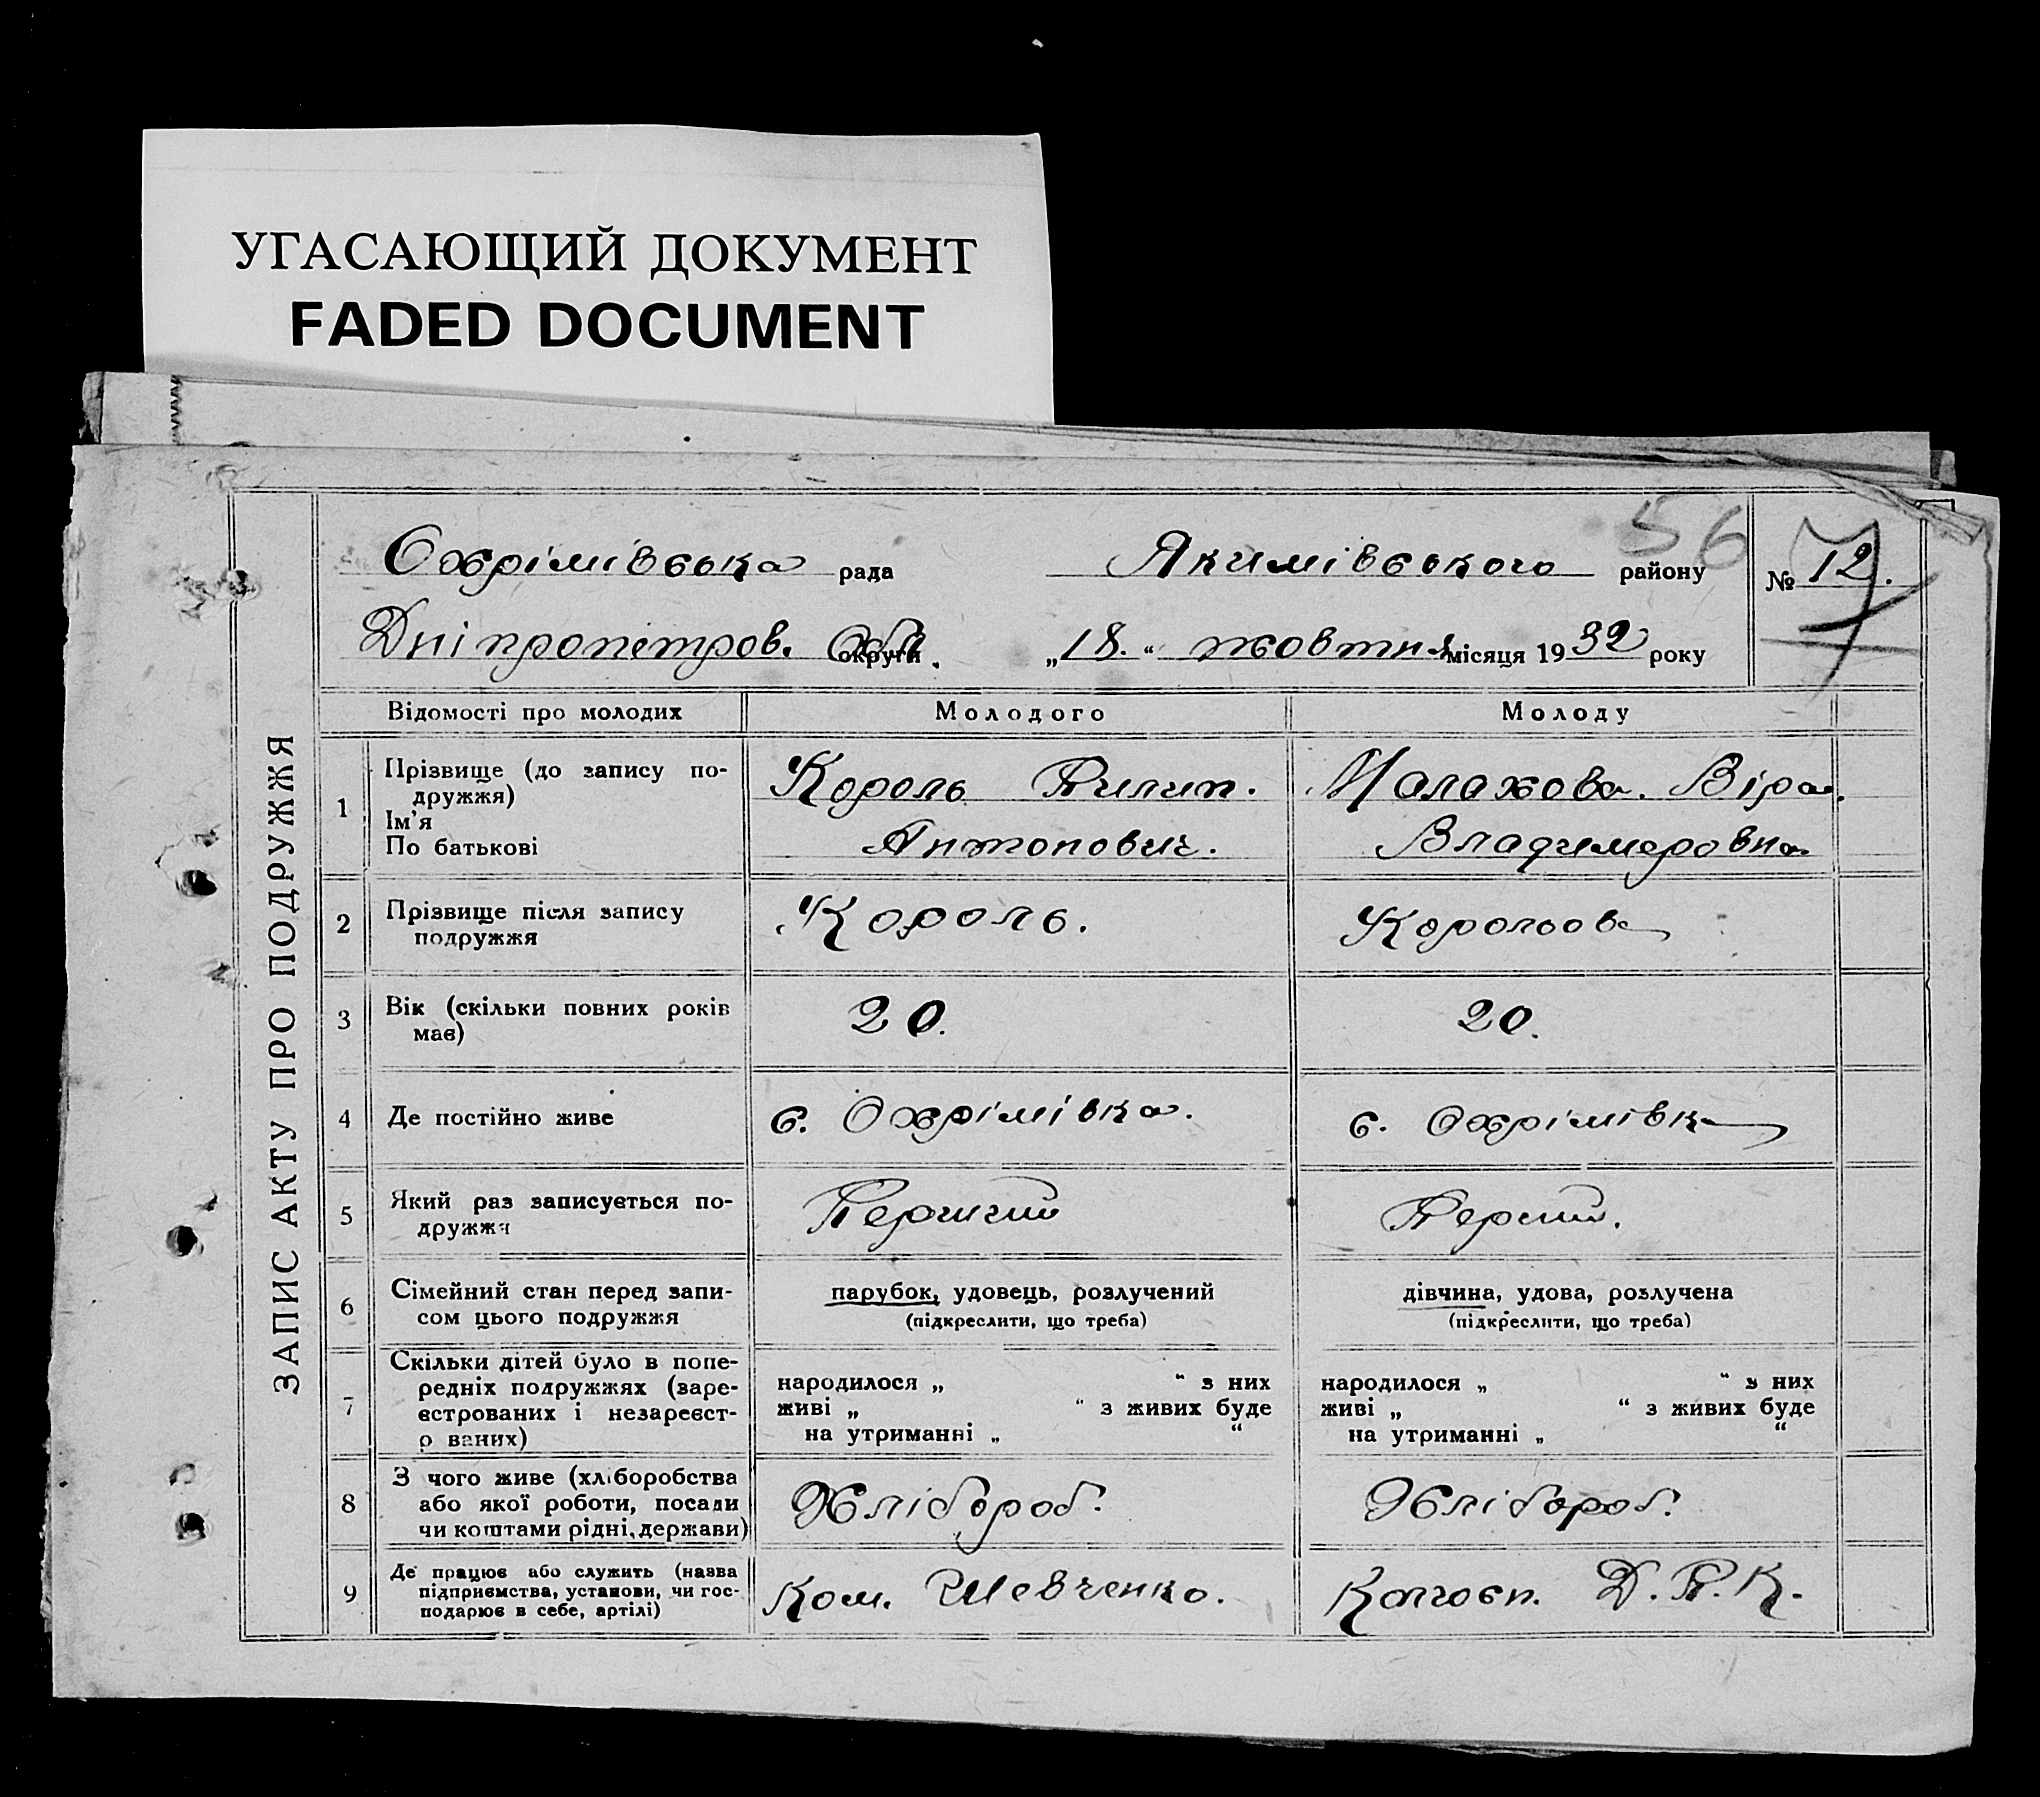 УГАСАЮЩИЙ ДОКУМЕНТ
FADED DOCUMENT
56
Охрімівська рада Якимівського району № 12. 7
Дніпропетров. Обл. округи „18.“ жовтня місяця 1932 року
ЗАПИС АКТУ ПРО ПОДРУЖЖЯ
Відомості про молодих Молодого Молоду
1 Прізвище (до запису по- Король Пилип. Малахова. Віра.
дружжя)
Ім'я
По батькові Антонович. Владимеровна
2 Прізвище після запису Король. Корольова
подружжя
3 Вік (скільки повних років 20. 20.
має)
4 Де постійно живе с. Охрімівка. с. Охрімівка
5 Який раз записується по- Перший Перший.
дружжя
6 Сімейний стан перед запи- парубок, удовець, розлучений дівчина, удова, розлучена
сом цього подружжя (підкреслити, що треба) (підкреслити, що треба)
7 Скільки дітей було в попе-
редніх подружжях (заре- народилося „ “ з них народилося „ “ з них
єстрованих і незареєст- живі „ “ з живих буде живі „ “ з живих буде
р ваних) на утриманні „ “ на утриманні „ “
8 З чого живе (хліборобства Хлібороб. Хлібороб.
або якої роботи, посади
чи коштами рідні, держави)
9 Де працює або служить (назва Ком. Шевченко. Колгосп. Д.П.К.
підприємства, установи, чи гос-
подарює в себе, артілі)